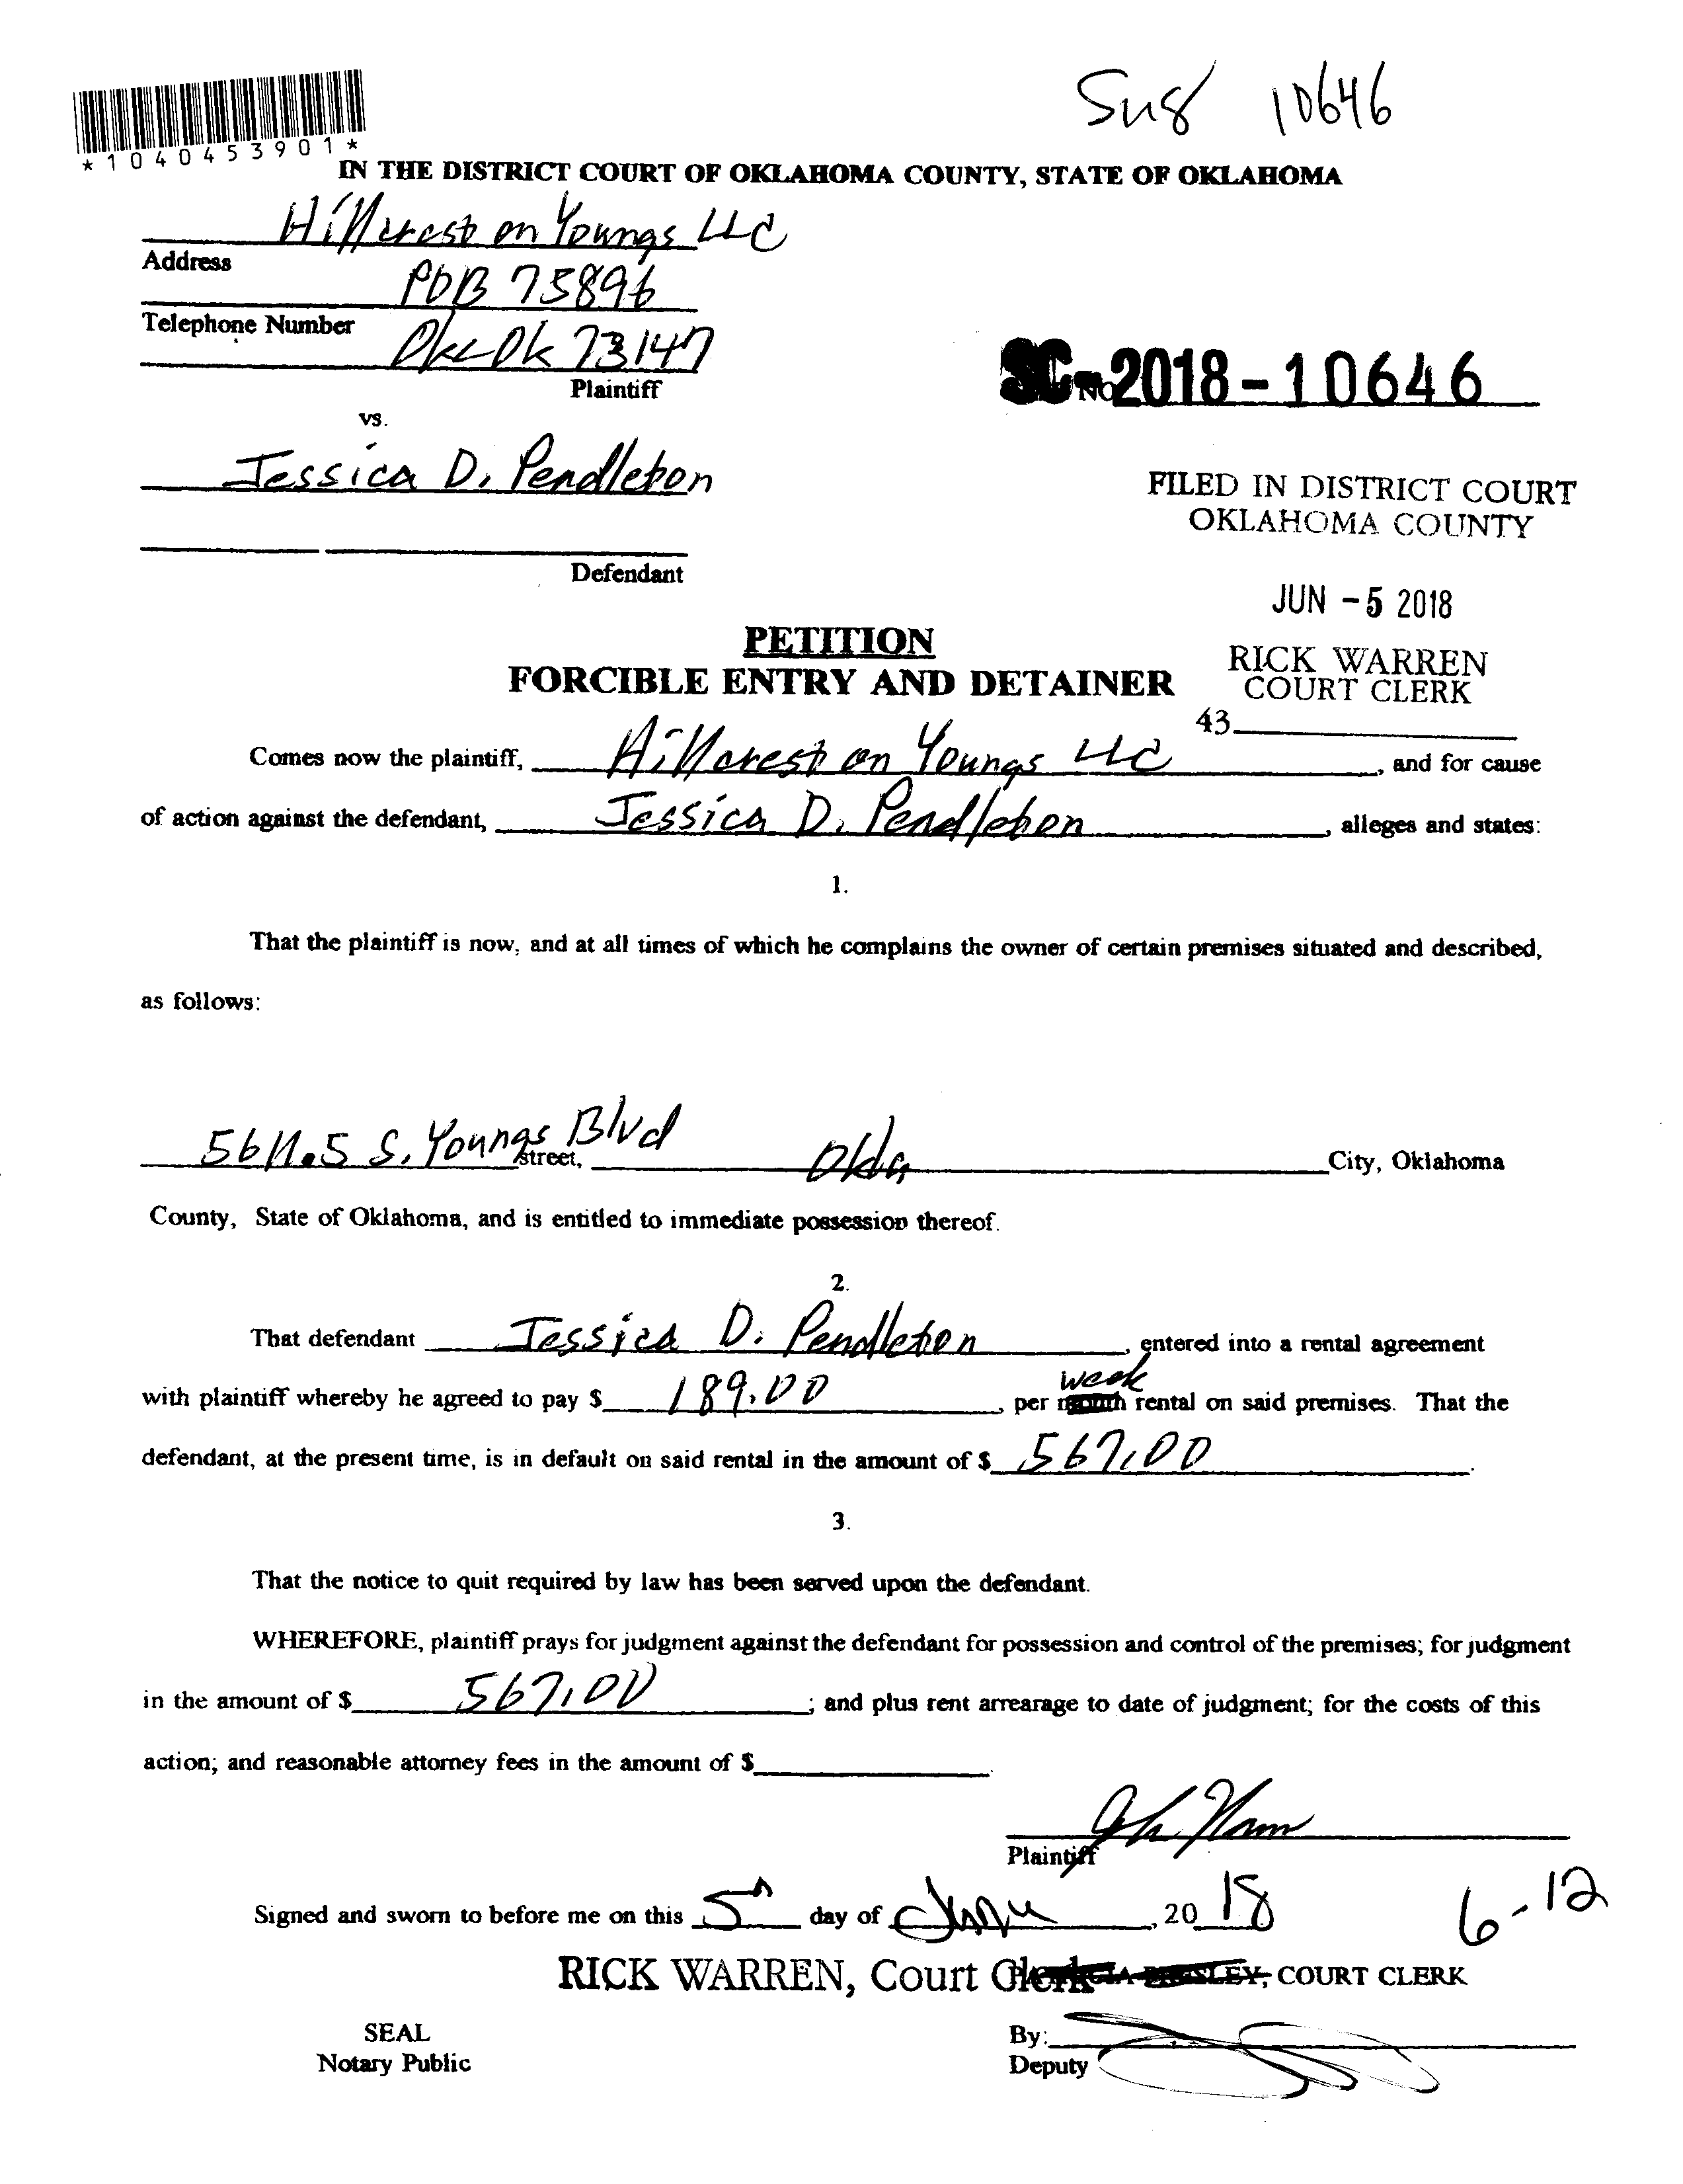 *1040453901*
10646
IN THE DISTRICT COURT OF OKLAHOMA COUNTY, STATE OF OKLAHOMA
Hillcrest on Youngs LLC
Address
POB 75896
Telephone Number
Okc Ok 73147
Plaintiff
SC-2018-10646
NO
vs.
Jessica D. Pendleton
FILED IN DISTRICT COURT
OKLAHOMA COUNTY
Defendant
JUN -5 2018
PETITION
FORCIBLE ENTRY AND DETAINER
RICK WARREN
COURT CLERK
43
Comes now the plaintiff, Hillcrest on Youngs LLC, and for cause
of action against the defendant, Jessica D. Pendleton, alleges and states:
1.
That the plaintiff is now, and at all times of which he complains the owner of certain premises situated and described,
as follows:
5611.5 S. Youngs Blvd street, Okla City, Oklahoma
County, State of Oklahoma, and is entitled to immediate possession thereof.
2.
That defendant Jessica D. Pendleton, entered into a rental agreement
with plaintiff whereby he agreed to pay $ 189.00, per month week rental on said premises. That the
defendant, at the present time, is in default on said rental in the amount of $ 567.00.
3.
That the notice to quit required by law has been served upon the defendant.
WHEREFORE, plaintiff prays for judgment against the defendant for possession and control of the premises; for judgment
in the amount of $ 567.00; and plus rent arrearage to date of judgment; for the costs of this
action; and reasonable attorney fees in the amount of $.
Plaintiff
Signed and sworn to before me on this 5th day of June, 20 18
6-12
RICK WARREN, Court Clerk COURT CLERK
SEAL
Notary Public
By:
Deputy